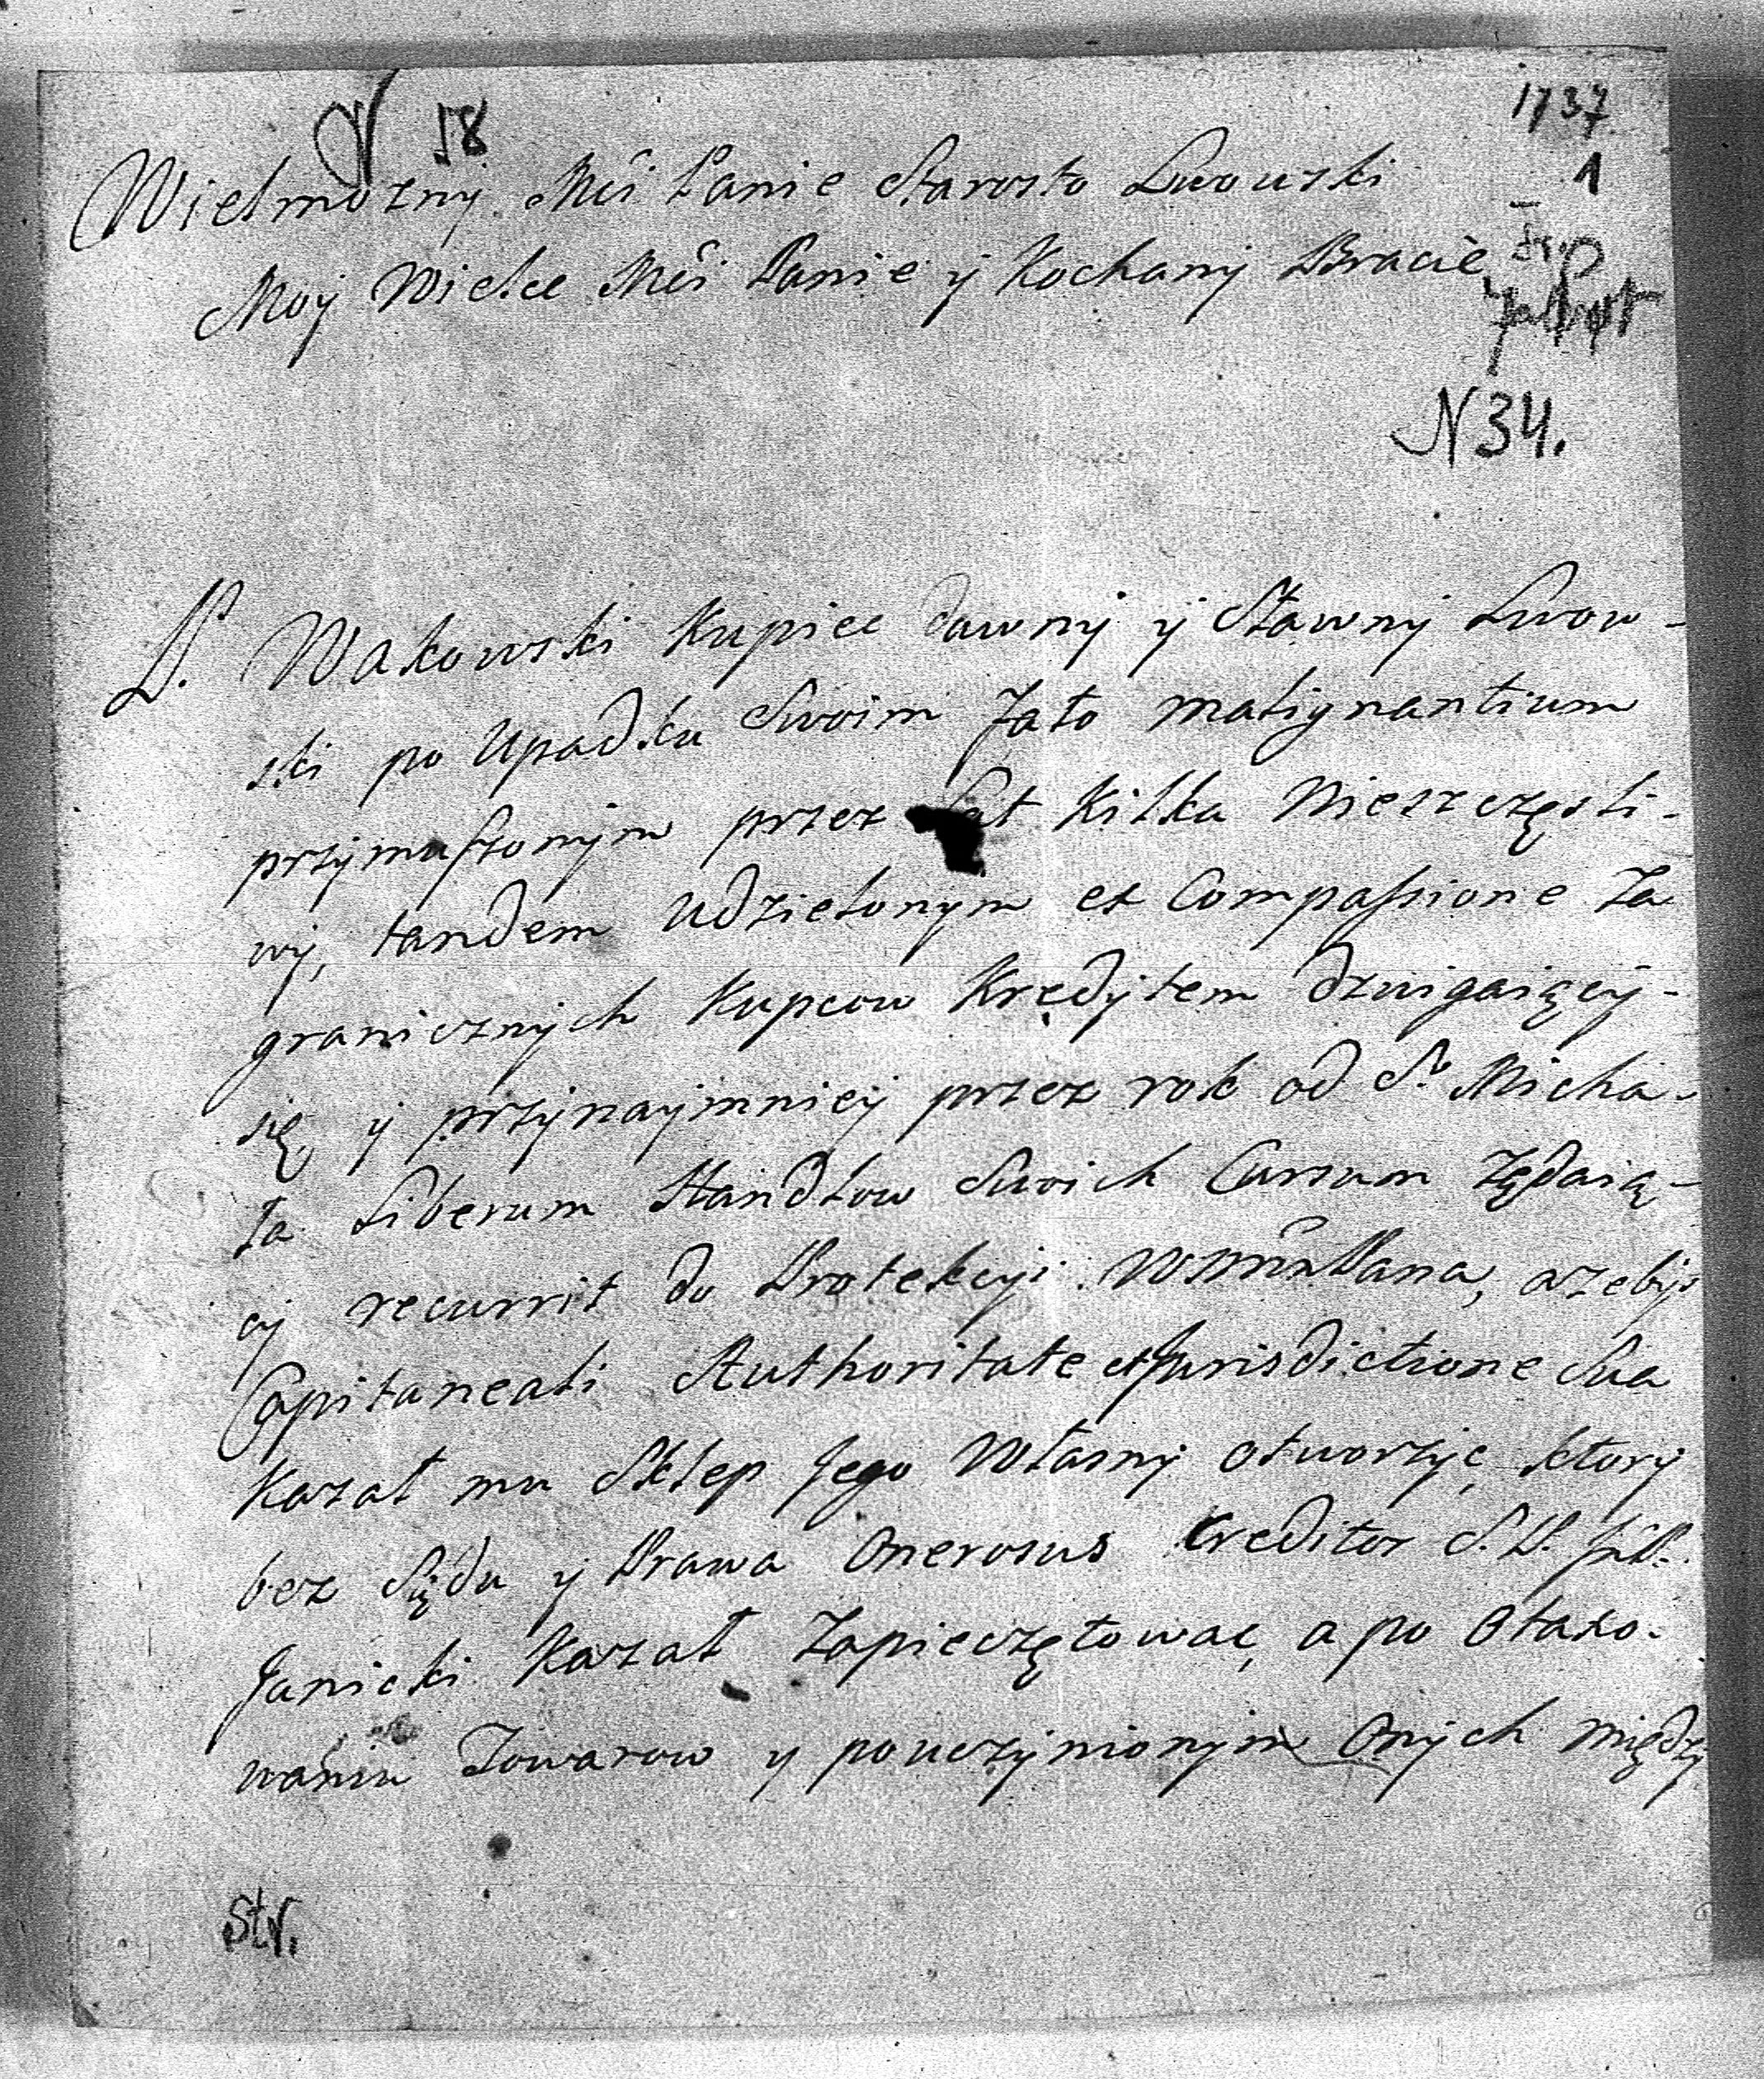 18
1737
1
Wielmozny Mći Panie Starosto Lwowski
Moy Wielce Mći Panie y Kochany Bracie
N 34.
P. Wakowski Kupiec dawny y Sławny Lwow-
ski po Upadku Swoim Zato malignantium
przymuszonym przez Lat Kilka Nieszczęsli-
wy, tandem Udzielonym ex Compassione Za
granicznych Kupcow Kredytem dzwigaiący-
się, y przynaymniey przez rok od S. Micha-
ła Liberum Handlow Swoich Cursum Zędaią-
cy recurrit do Protekcyi WMM Pana, azebys
Capitaneali Authoritate et Jurisdictione Sua
Kazał mu Sklep Jego Własny otworzyć, ktory
bez Sądu y Prawa Onerosus Creditor S. P.
Janicki Kazał Zapieczętować, a po Otaxo-
waniu Towarow y pouczynionym Onych między
Str.